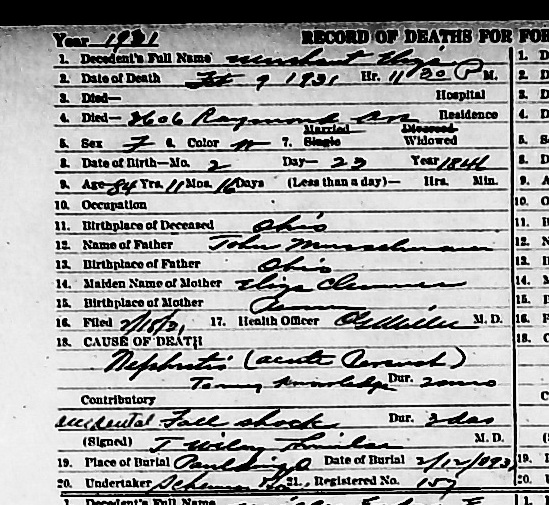 Year 1931 RECORD OF DEATHS FOR FOR
1. Decedent's Full Name Merchant Eliza
2. Date of Death Feb 9 1931 Hr. 11 30 P M.
3. Died— Hospital
4. Died— 2606 Raymond Ave Residence
5. Sex F 6. Color W 7. Married Single Divorced Widowed
8. Date of Birth—Mo. 2 Day— 23 Year 1846
9. Age 84 Yrs. 11 Mos. 16 Days (Less than a day)— Hrs. Min.
10. Occupation
11. Birthplace of Deceased Ohio
12. Name of Father John Musselman
13. Birthplace of Father Ohio
14. Maiden Name of Mother Eliza Clemmer
15. Birthplace of Mother
16. Filed 2/18/31 17. Health Officer M. D.
18. CAUSE OF DEATH
Nephritis (acute
To my knowledge Dur. 2 mos
Contributory
accidental Fall shock Dur. 2 das
(Signed) T Wiley M. D.
19. Place of Burial Paulding O Date of Burial 2/12/1931
20. Undertaker 21. Registered No. 157
1. Decedent's Full Name
1. D
2. D
3. D
4. D
5. S
8. D
9. A
10. O
11. B
12. N
13. B
14. M
15. B
16. F
18. C
19.
20.